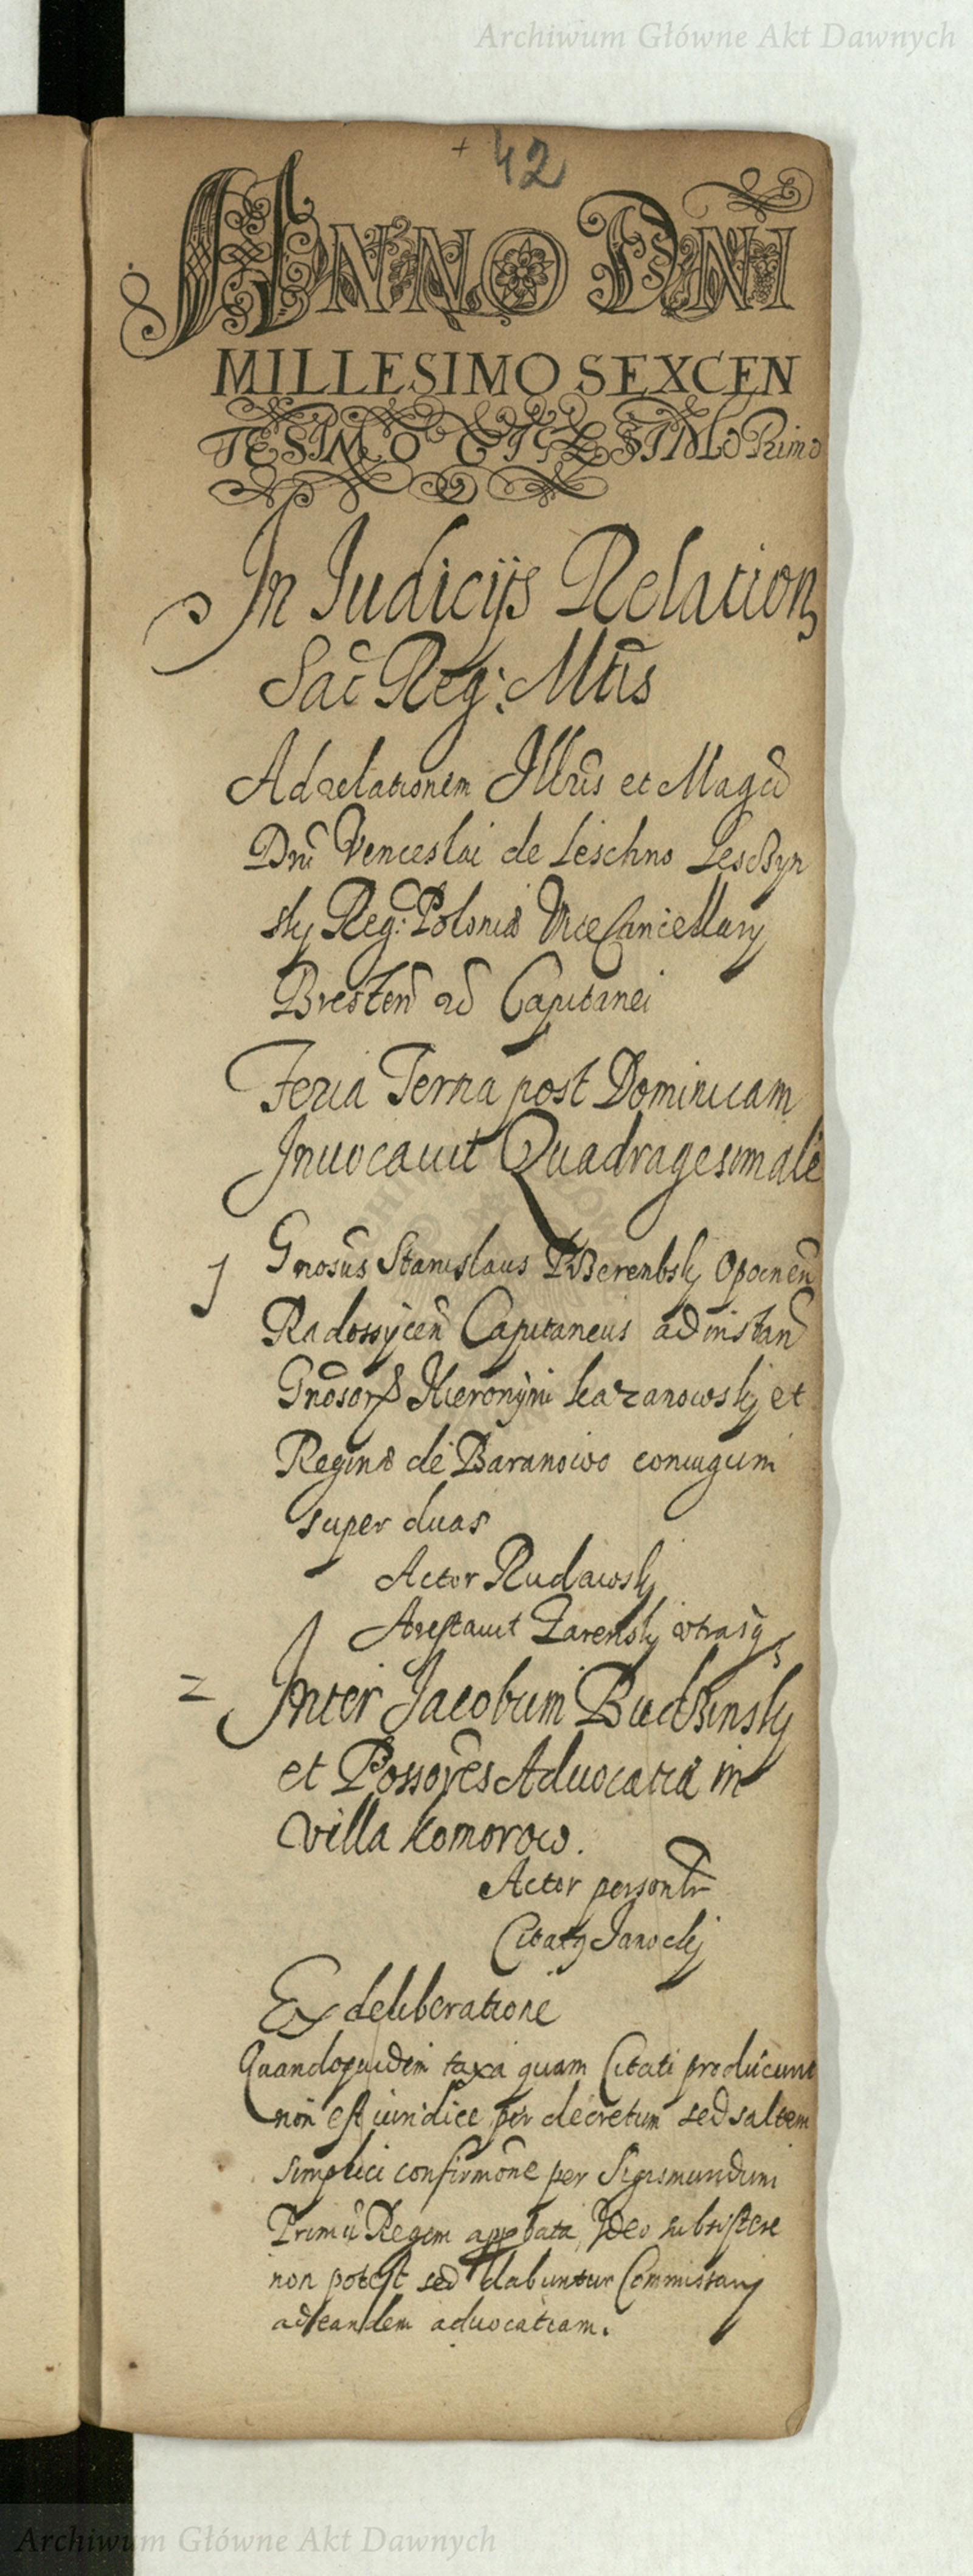 Archiwum Główne Akt Dawnych
+ 42
ANNO DNI
MILLESIMO SEXCEN
TESIMO TIGESIMO Primo
In Iudicijs Relation
Sac Reg: Mtis
Ad relationem Illris et Magci
Dni Venceslai de Leschno Lesczyn
sky Reg: Poloniæ ViceCancellary
Bresten ac Capitanei
Feria Terna post Dominicam
Inuocauit Quadragesimale
1 Gnosus Stanislaus Dzierembsky Opocnen
Radossycen Capitaneus ad instan
Gnosor Hieronymi kazanowsky et
Reginæ de Baranowo coniugum
super duas
Actor Rudawsky
Arestauit Zarensky vtrasq
2 Inter Jacobum Budzinsky
et Possores Aduocatiæ in
villa komorow.
Actor personlr
Citaty Janocky
Ex deliberatione
Quandoquidem taxa quam Citati producunt
non est iuridice per decretum sed saltem
simplici confirmone per Sigismundum
Primu Regem appbata, Ideo subsistere
non potest sed dabuntur Commissary
ad eandem aduocatiam.
Archiwum Główne Akt Dawnych